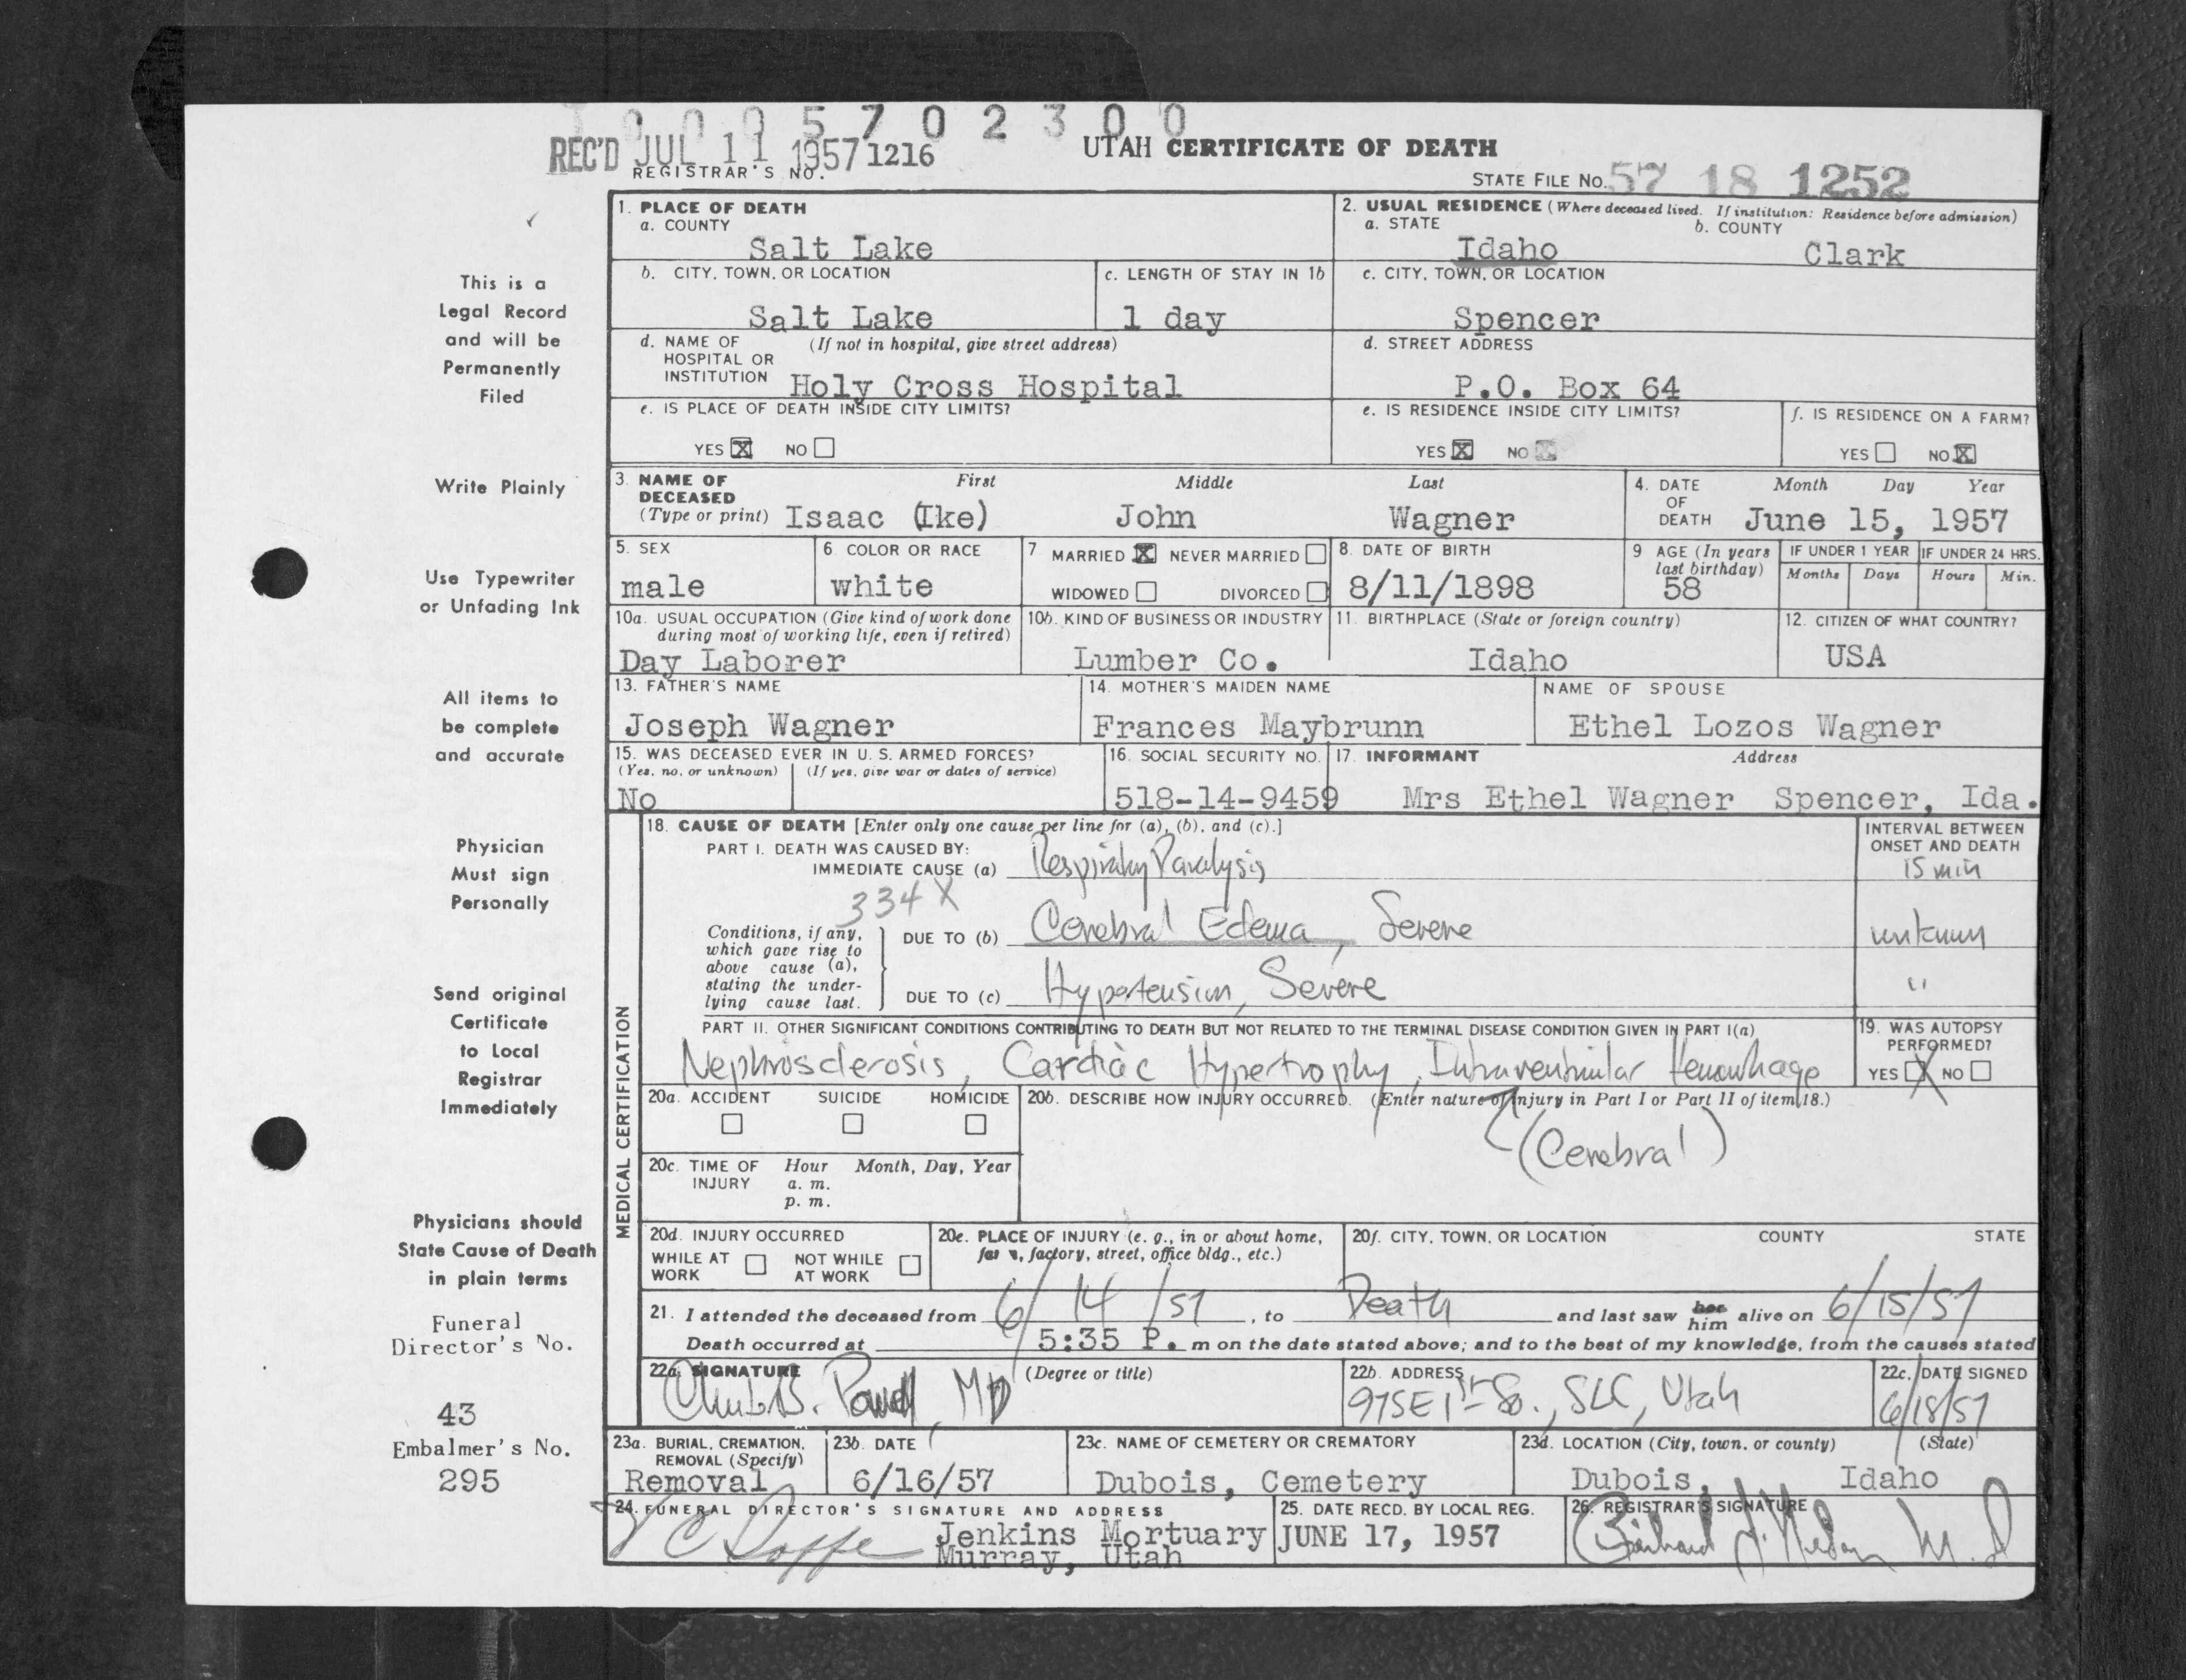 1 0 0 0 5 7 0 2 3 0 0
REC'D JUL 11 1957 1216
REGISTRAR'S NO.
UTAH CERTIFICATE OF DEATH
STATE FILE NO. 57 18 1252
This is a
Legal Record
and will be
Permanently
Filed
Write Plainly
Use Typewriter
or Unfading Ink
All items to
be complete
and accurate
Physician
Must sign
Personally
Send original
Certificate
to Local
Registrar
Immediately
Physicians should
State Cause of Death
in plain terms
Funeral
Director's No.
43
Embalmer's No.
295
1. PLACE OF DEATH
a. COUNTY
Salt Lake
b. CITY, TOWN, OR LOCATION
Salt Lake
c. LENGTH OF STAY IN 1b
1 day
d. NAME OF (If not in hospital, give street address)
HOSPITAL OR
INSTITUTION Holy Cross Hospital
e. IS PLACE OF DEATH INSIDE CITY LIMITS?
YES X NO
2. USUAL RESIDENCE (Where deceased lived. If institution: Residence before admission)
a. STATE b. COUNTY
Idaho Clark
c. CITY, TOWN, OR LOCATION
Spencer
d. STREET ADDRESS
P.O. Box 64
e. IS RESIDENCE INSIDE CITY LIMITS?
YES X NO X
f. IS RESIDENCE ON A FARM?
YES NO X
3. NAME OF DECEASED First Middle Last
(Type or print) Isaac (Ike) John Wagner
4. DATE OF DEATH Month Day Year
June 15, 1957
5. SEX
male
6. COLOR OR RACE
white
7 MARRIED X NEVER MARRIED
WIDOWED DIVORCED
8. DATE OF BIRTH
8/11/1898
9 AGE (In years
last birthday)
58
IF UNDER 1 YEAR IF UNDER 24 HRS.
Months Days Hours Min.
10a. USUAL OCCUPATION (Give kind of work done
during most of working life, even if retired)
Day Laborer
10b. KIND OF BUSINESS OR INDUSTRY
Lumber Co.
11. BIRTHPLACE (State or foreign country)
Idaho
12. CITIZEN OF WHAT COUNTRY?
USA
13. FATHER'S NAME
Joseph Wagner
14. MOTHER'S MAIDEN NAME
Frances Maybrunn
NAME OF SPOUSE
Ethel Lozos Wagner
15. WAS DECEASED EVER IN U. S. ARMED FORCES?
(Yes, no, or unknown) (If yes, give war or dates of service)
No
16. SOCIAL SECURITY NO.
518-14-9459
17. INFORMANT Address
Mrs Ethel Wagner Spencer, Ida.
MEDICAL CERTIFICATION
18. CAUSE OF DEATH [Enter only one cause per line for (a), (b), and (c).]
PART I. DEATH WAS CAUSED BY:
IMMEDIATE CAUSE (a) Respiratory Paralysis
334 X
Conditions, if any,
which gave rise to
above cause (a),
stating the under-
lying cause last.
DUE TO (b) Cerebral Edema, Severe
DUE TO (c) Hypertension, Severe
INTERVAL BETWEEN
ONSET AND DEATH
15 min
unknown
"
PART II. OTHER SIGNIFICANT CONDITIONS CONTRIBUTING TO DEATH BUT NOT RELATED TO THE TERMINAL DISEASE CONDITION GIVEN IN PART I(a)
Nephrosclerosis, Cardiac Hypertrophy, Intraventricular Hemorrhage
(Cerebral)
19. WAS AUTOPSY
PERFORMED?
YES X NO
20a. ACCIDENT SUICIDE HOMICIDE
20b. DESCRIBE HOW INJURY OCCURRED. (Enter nature of injury in Part I or Part II of item 18.)
20c. TIME OF INJURY Hour Month, Day, Year
a. m.
p. m.
20d. INJURY OCCURRED
WHILE AT WORK NOT WHILE AT WORK
20e. PLACE OF INJURY (e. g., in or about home,
farm, factory, street, office bldg., etc.)
20f. CITY, TOWN, OR LOCATION COUNTY STATE
21. I attended the deceased from 6/14/57, to Death and last saw her him alive on 6/15/57
Death occurred at 5:35 P. m on the date stated above; and to the best of my knowledge, from the causes stated
22a. SIGNATURE (Degree or title)
B. Powell, MD
22b. ADDRESS
975 E 1st So., SLC, Utah
22c. DATE SIGNED
6/18/57
23a. BURIAL, CREMATION,
REMOVAL (Specify)
Removal
23b. DATE
6/16/57
23c. NAME OF CEMETERY OR CREMATORY
Dubois, Cemetery
23d. LOCATION (City, town, or county) (State)
Dubois, Idaho
24. FUNERAL DIRECTOR'S SIGNATURE AND ADDRESS
Jenkins Mortuary
Murray, Utah
25. DATE RECD. BY LOCAL REG.
JUNE 17, 1957
26. REGISTRAR'S SIGNATURE
M.D